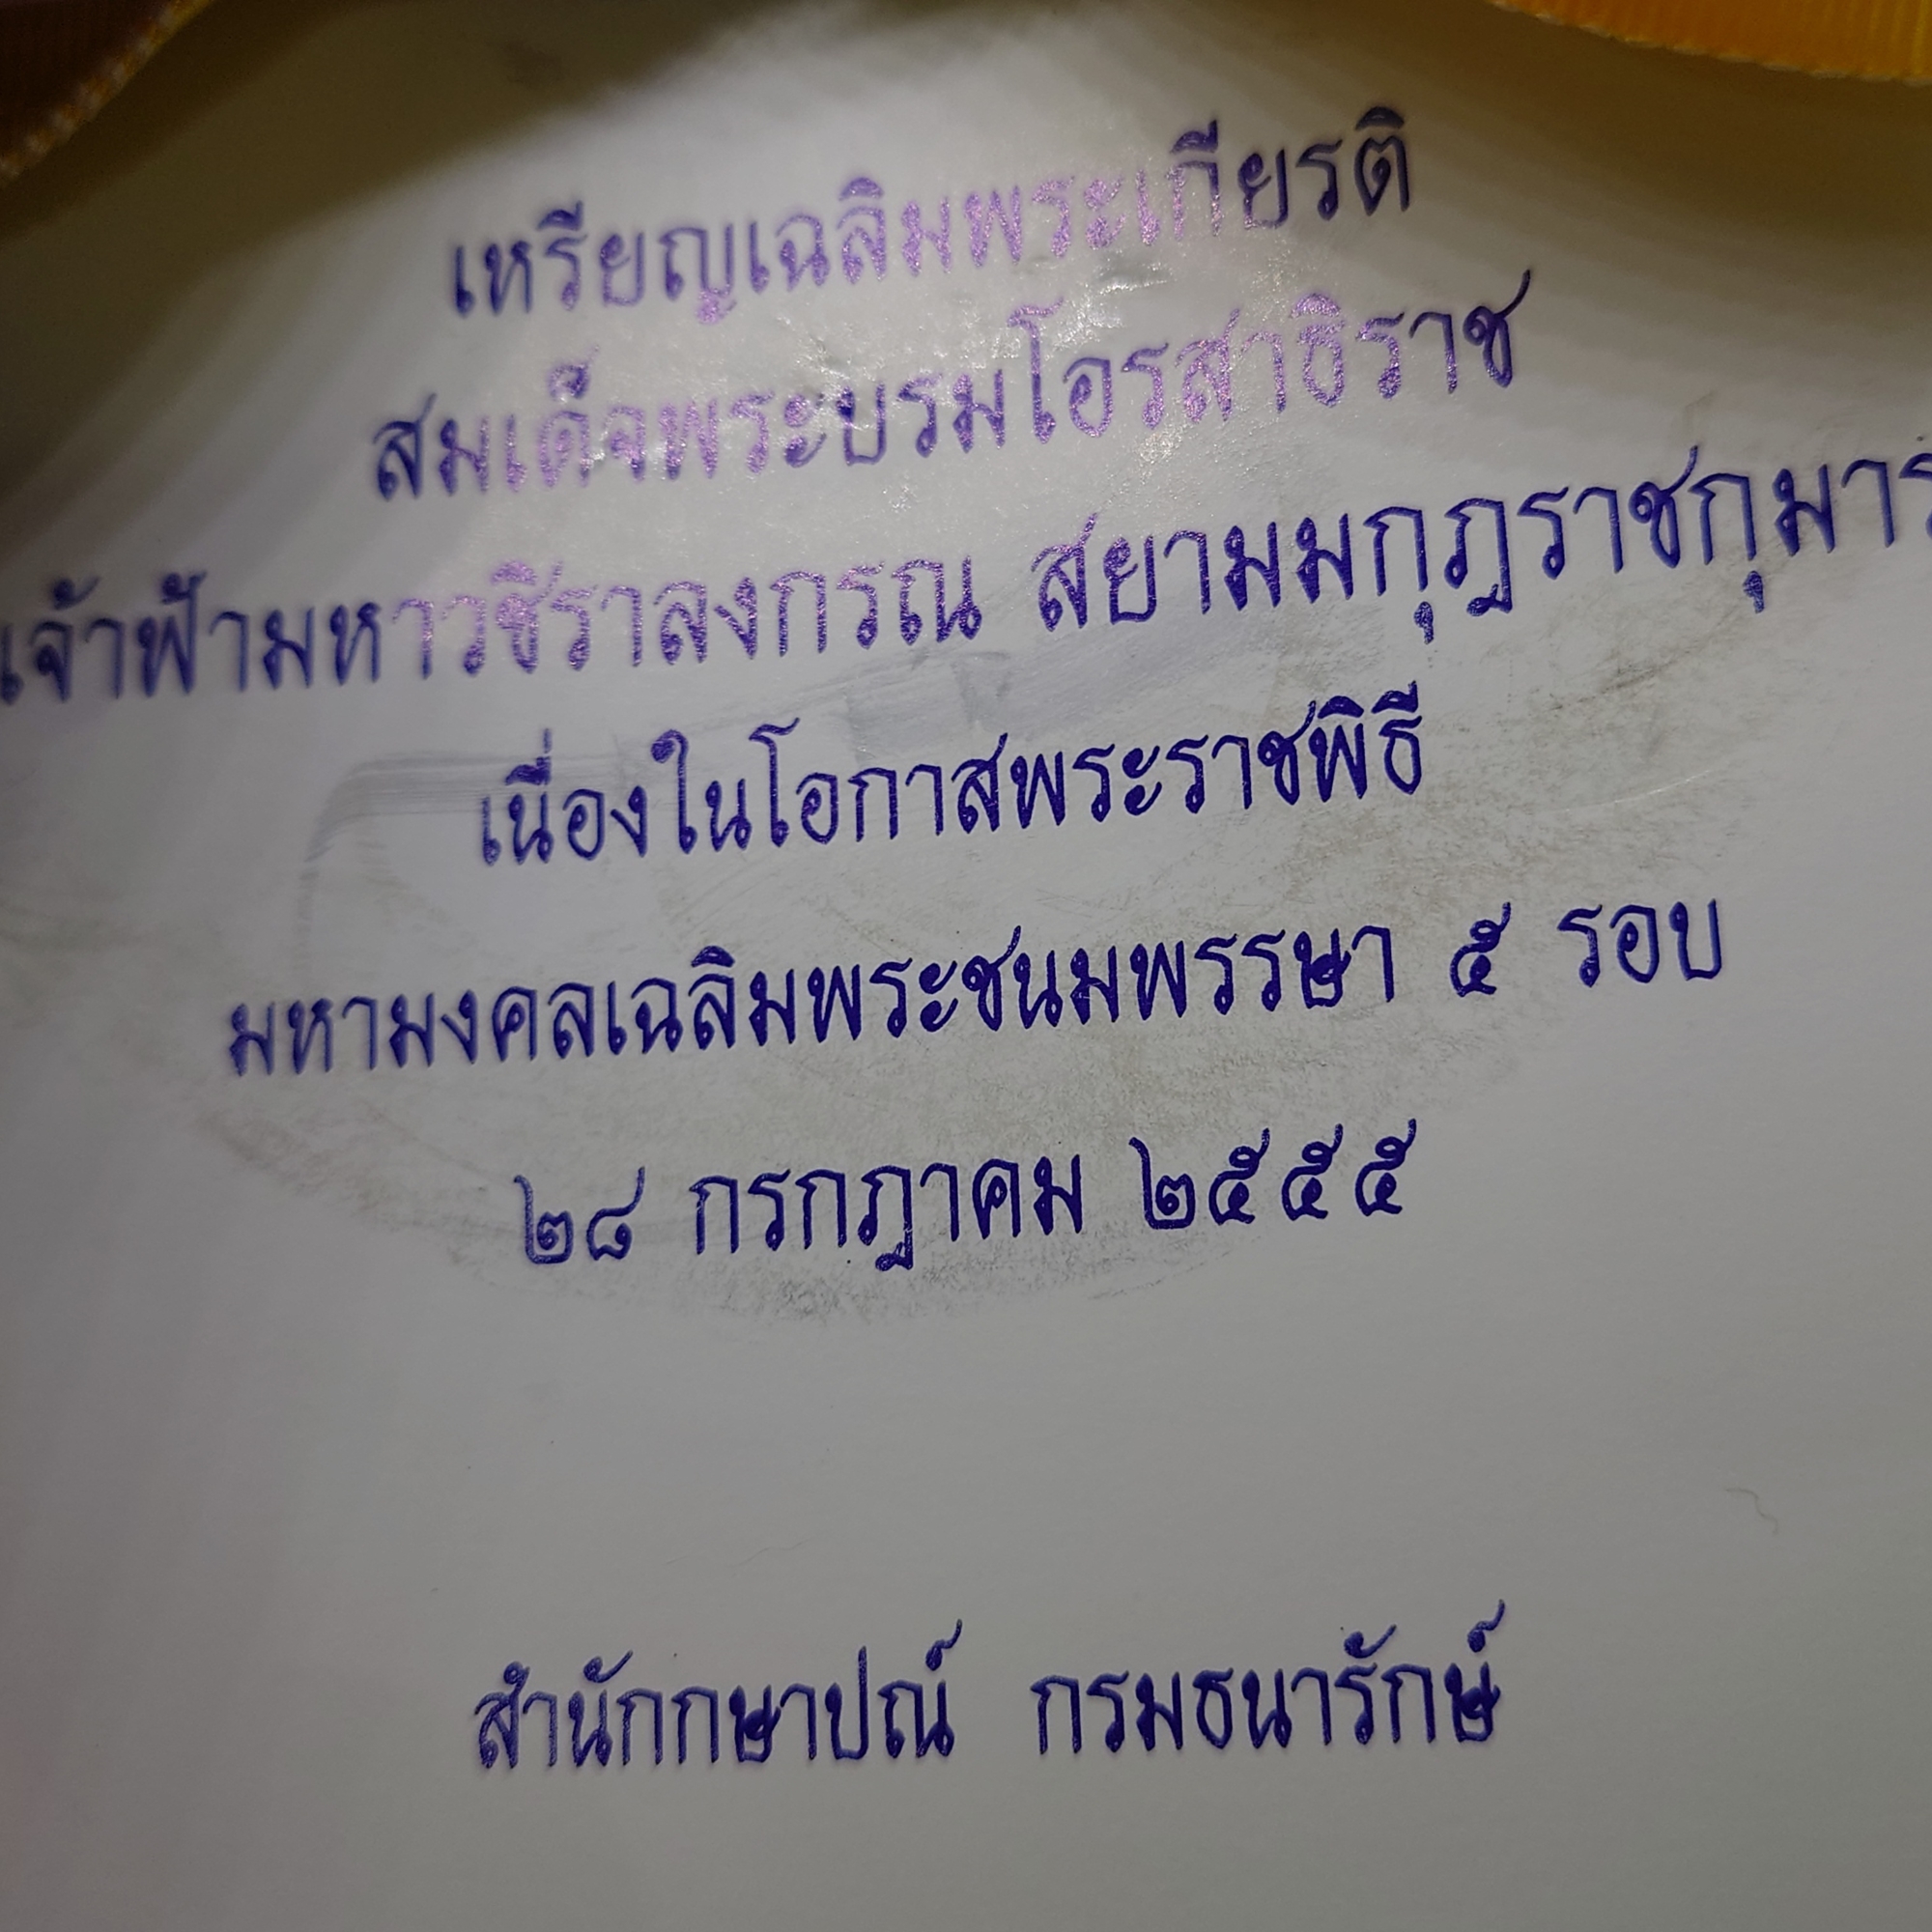 เหรียญเฉลิมพระเกียรติ
สมเด็จพระบรมโอรสาธิราช
เจ้าฟ้ามหาวชิราลงกรณ สยามมกุฎราชกุมาร
เนื่องในโอกาสพระราชพิธี
มหามงคลเฉลิมพระชนมพรรษา ๕ รอบ
๒๘ กรกฎาคม ๒๕๕๕
สำนักกษาปณ์ กรมธนารักษ์